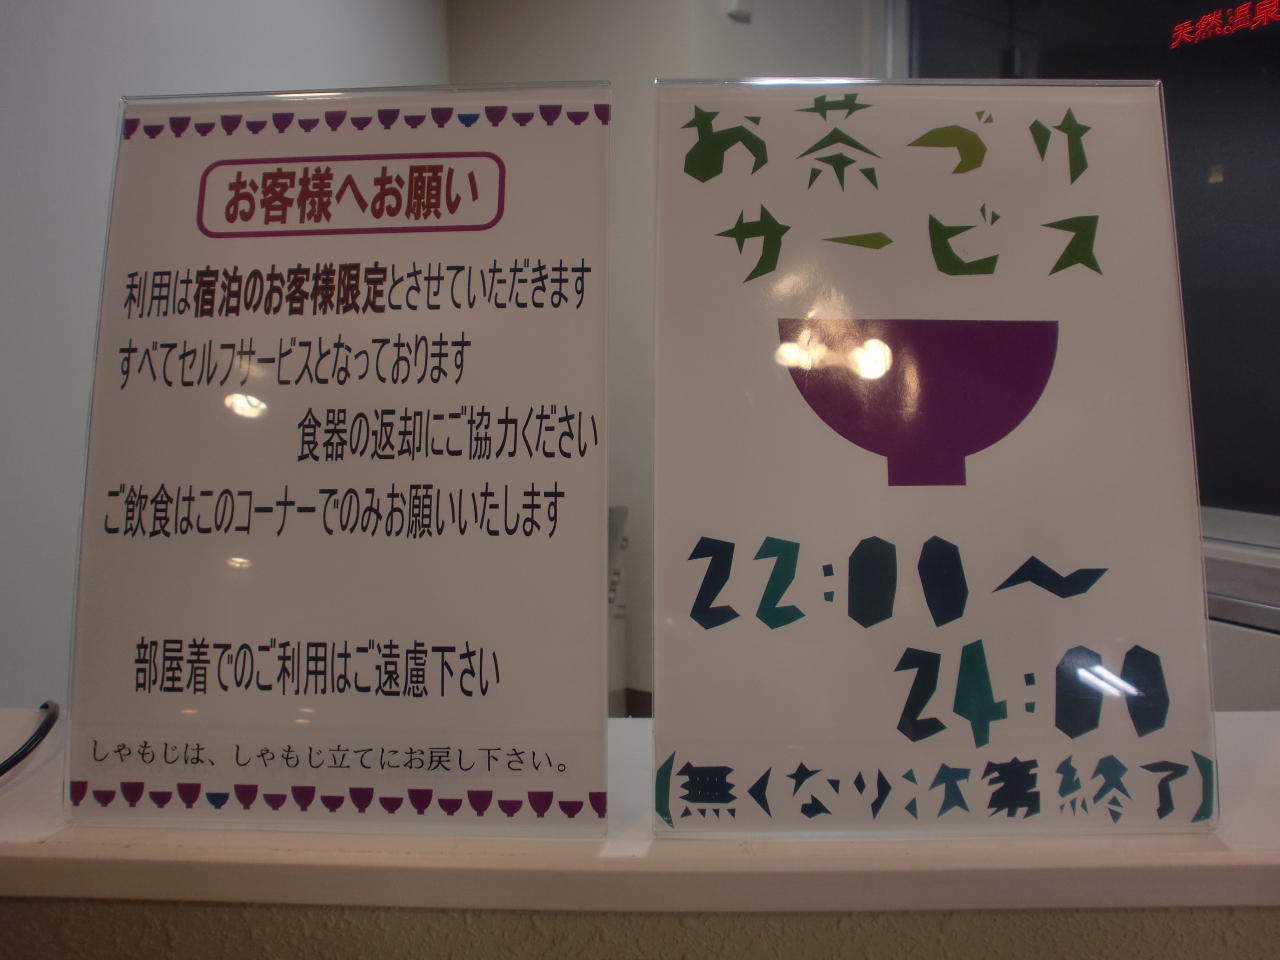 お客様へお願い
利用は宿泊のお客様限定とさせていただきます
すべてセルフサービスとなっております
食器の返却にご協力ください
ご飲食はこのコーナーでのみお願いいたします
部屋着でのご利用はご遠慮下さい
しゃもじは、しゃもじ立てにお戻し下さい。
お茶づけ
サービス
22:00～
24:00
(無くなり次第終了)
天然温泉